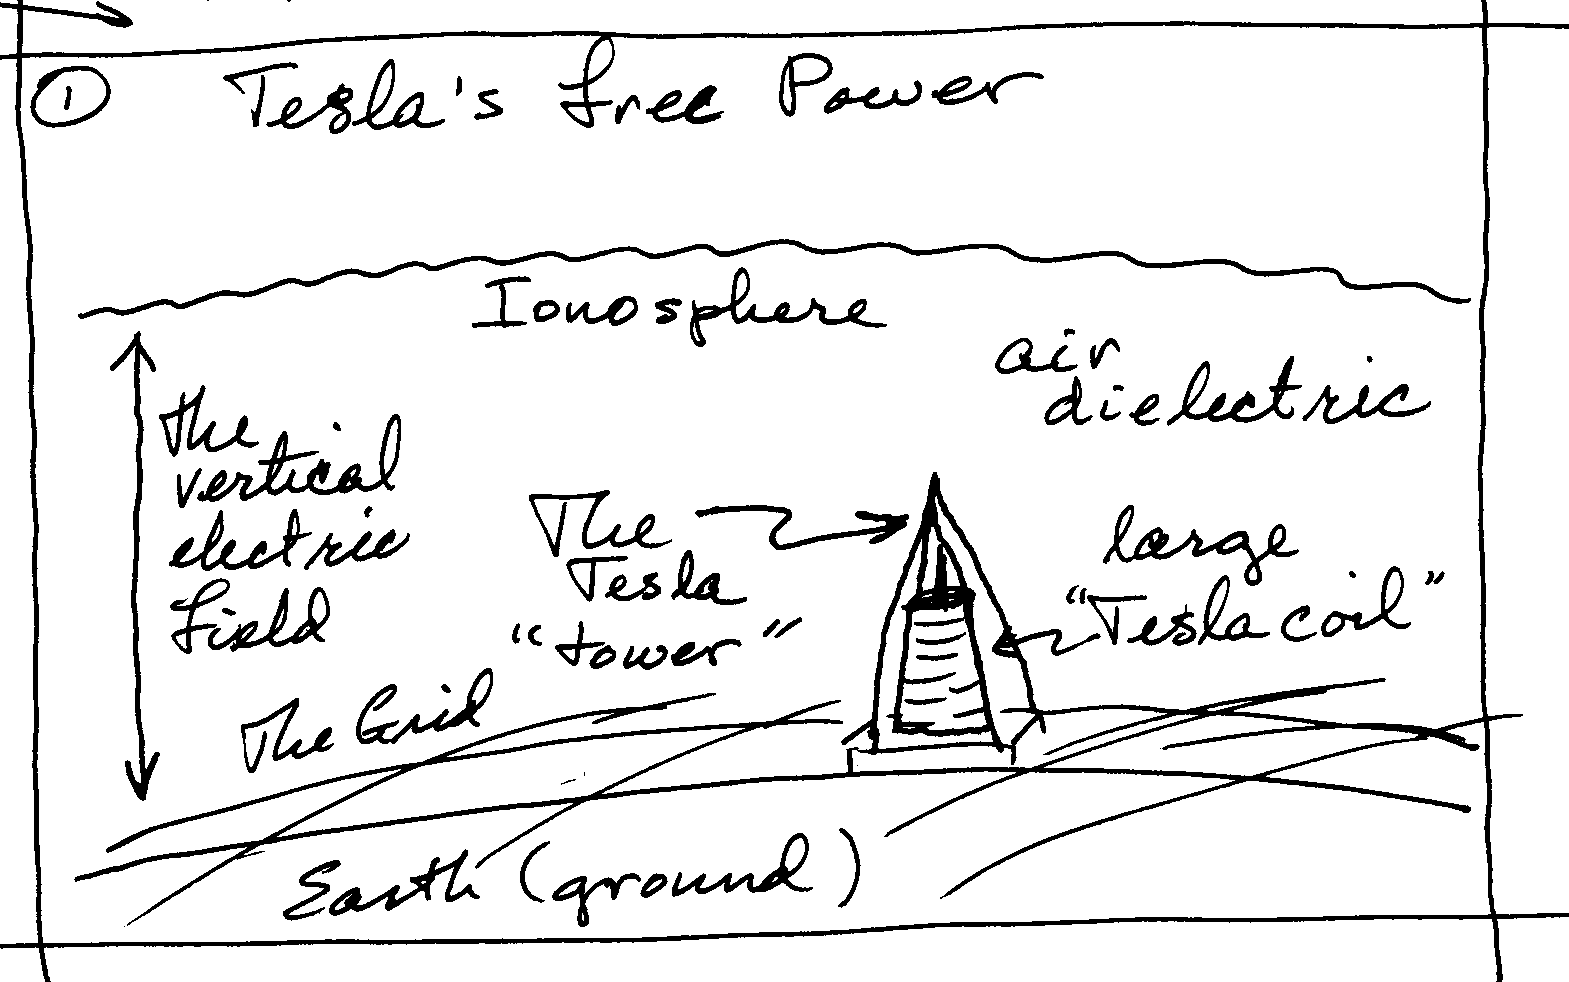 ① Tesla's free Power
Ionosphere
air
dielectric
the
vertical
electric
field
The
Tesla
"tower"
large
"Tesla coil"
The Grid
Earth (ground)